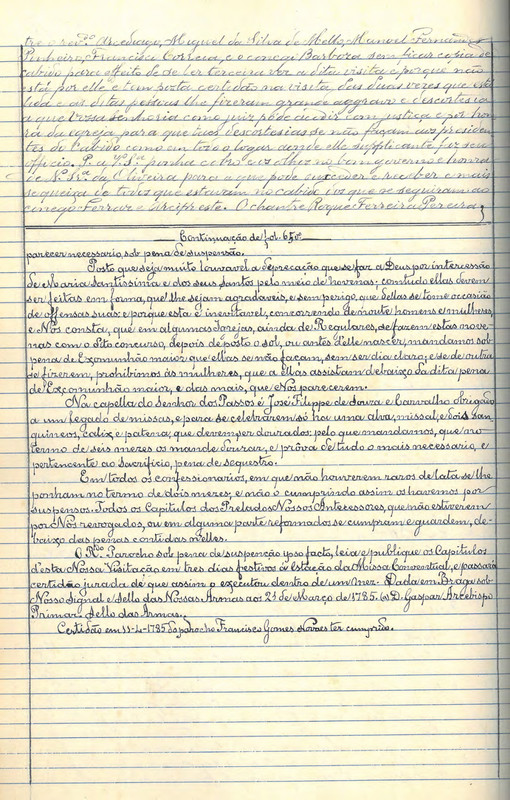 tre o revᵈᵒ Arcediago, Miguel da Silva de Mello, Manuel Fernandes
Pinheiro, Francisco Correia, e o conego Barboza sem ficar copia ao
cabido para effeito de se ler terceira vez a dita visita e porque não
está por elle e tem posta certidão na visita das duas vezes que está
lida e as ditas pessoas lhe fizeram grande aggravo e descortesia
a que vossa senhoria como juiz pode acudir com justiça e por hon-
ra da egreja para que taes descortesias se não façam aos presiden-
tes do Cabido como em treo logar aonde elle supplicante faz seu
officio. P. a Vª Sª ponha cobro aos olhos no bom governo e honra
de Nª Srª da Oliveira para o que pode exceder e receber e mais
se queixa de todos que estavam no cabido dos que se seguiram ao
conego Ferraz e Arcipreste. O chantre Roque Ferreira Pereira
Continuação de fol. 67vº
parecer necessario, sob pena de suspensão.
Posto que seja muito louvavel a deprecação que se faz a Deus por intercessão
de Maria Santissima e dos seus Santos pelo meio de novenas; comtudo ellas devem
ser feitas em forma, que lhe sejam agradaveis, e sem perigo, que d'ellas se tome occasião
de offensas suas: e porque esta é inevitavel, concorrendo de noute homens e mulheres,
e Nós consta, que em algumas Igrejas, ainda de Regulares, se fazem estas nove-
nas com o dito concurso, depois de posto o sol, ou antes d'elle nascer, mandamos sob
pena de Excomunhão maior que ellas se não façam, sem ser dia claro; e se de outra
se fizerem, prohibimos ás mulheres, que a ellas assistam debaixo da dita pena
de Excomunhão maior, e das mais, que Nós parecerem.
Na capella do Senhor dos Passos é José Filippe de Souza e Carvalho obrigado
a um legado de missas, e para se celebrarem só ha uma alva, missal, e dois san-
guineos, calix, e patena, que devem ser dourados; pelo que mandamos, que no
termo de seis mezes os mande dourar, e prôva de tudo o mais necessario, e
pertencente ao Sacrificio, pena de sequestro.
Em todos os confessionarios, em que não houverem raros de lata se lhe
ponham no termo de dois mezes, e não o cumprindo assim os havemos por
suspensos. Todos os Capitulos dos Prelados Nossos Antecessores, que não estiverem
por Nós revogados, ou em alguma parte reformados se cumpram e guardem, de-
baixo das penas contidas n'elles.
O Rᵈᵒ Parocho sob pena de suspenção ipso facto, leia e publique os Capitulos
d'esta Nossa Visitação em tres dias festivos á Estação da Missa Conventual, e passará
certidão jurada de que assim o executou dentro de um mez. Dada em Braga sob
Nosso Signal e Sello das Nossas Armas aos 21 de Março de 1785. (a) D. Gaspar Arcebispo
Primaz. Sello das Armas.
Certidão em 11-4-1785 do parocho Francisco Gomes Novaes ter cumprido.